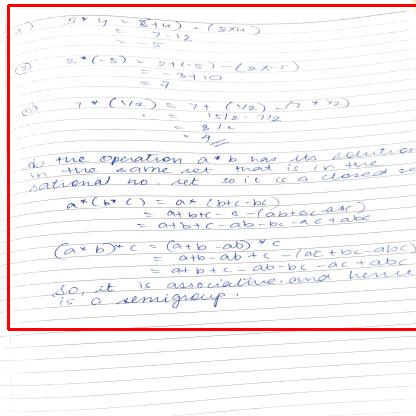 3 * 4 = (3+4) - (3x4)
= 7-12
= -5
② 2*(-5) = 2+(-5) - (2x-5)
= -3+10
= 7
③ 7 * (1/2) = 7+ (1/2) - (7 * 1/2)
= 15/2 - 7/2
= 8/2
= 4
the operation a*b has its solution
in the same set that is in the
rational no. set so it is a closed
a*(b*c) = a* (b+c-bc)
= a+b+c-bc-(ab+ac-abc)
= a+b+c-ab-bc-ac+abc
(a*b)*c = (a+b-ab) *c
= a+b-ab+c-(ac+bc-abc)
= a+b+c-ab-bc-ac+abc
So, it is associative and hence
is a semigroup.